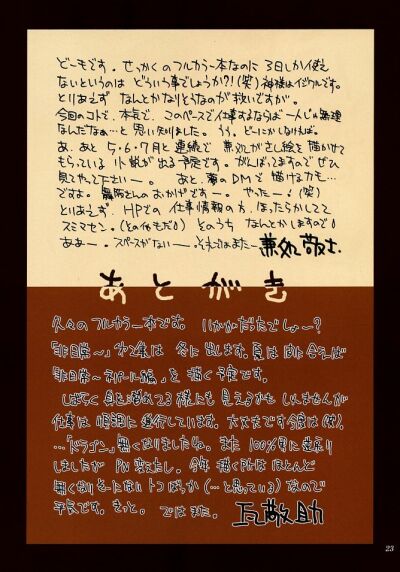 どーもです。せっかくのフルカラー本なのに3日しか使え
ないというのはどういう事でしょうか?!(笑)神様はイジワルです。
とりあえずなんとかなりそうなのが救いですが。
今回のコトで、本気で、このペースで仕事するならば一人じゃ無理
なんだなぁ…と思い知りました。うう、どーにかしなければ。
あ、あと5・6・7月と連続で 兼処がさし絵を描かせて
もらっている小説が出る予定です。がんばってますのでぜひ
見てやって下さいー。あと、夏のDMで描けるカモ…
ですよ。さんのおかげですー。やったー!(笑)
とりあえず、HPでの仕事情報の方、ほったらかしてて
スミマセン。(その他もだ)そのうちなんとかしますので!
ああー。スペースがないー。それではまたー
あとがき
久々のフルカラー本です。いかがだたでしょー?
「非日常〜」第2集は冬に出します。夏は間に合えば
「非日常〜」を描く予定です。
しばらく息を潜めてる様にも見えるかもしんませんが
仕事は順調に進行しています。大丈夫です今度は(笑)。
…「ドラゴン」無くなりましたね。また100%男に逆戻り
しましたがPN変えたし。今年描く所はほとんど
無くなりそーにないトコばっか(…と思っている)なので
平気です。きっと。ではまた。
23